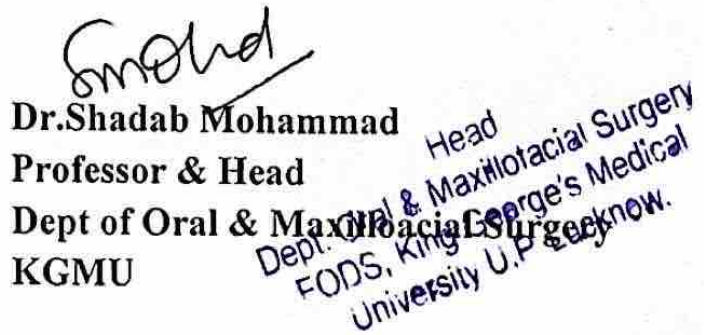 Smohd
Dr.Shadab Mohammad
Professor & Head
Dept of Oral & Maxilloacial Surgery
KGMU
Head
Dept. Oral & Maxillofacial Surgery
FODS, King George's Medical
University U.P Lucknow.